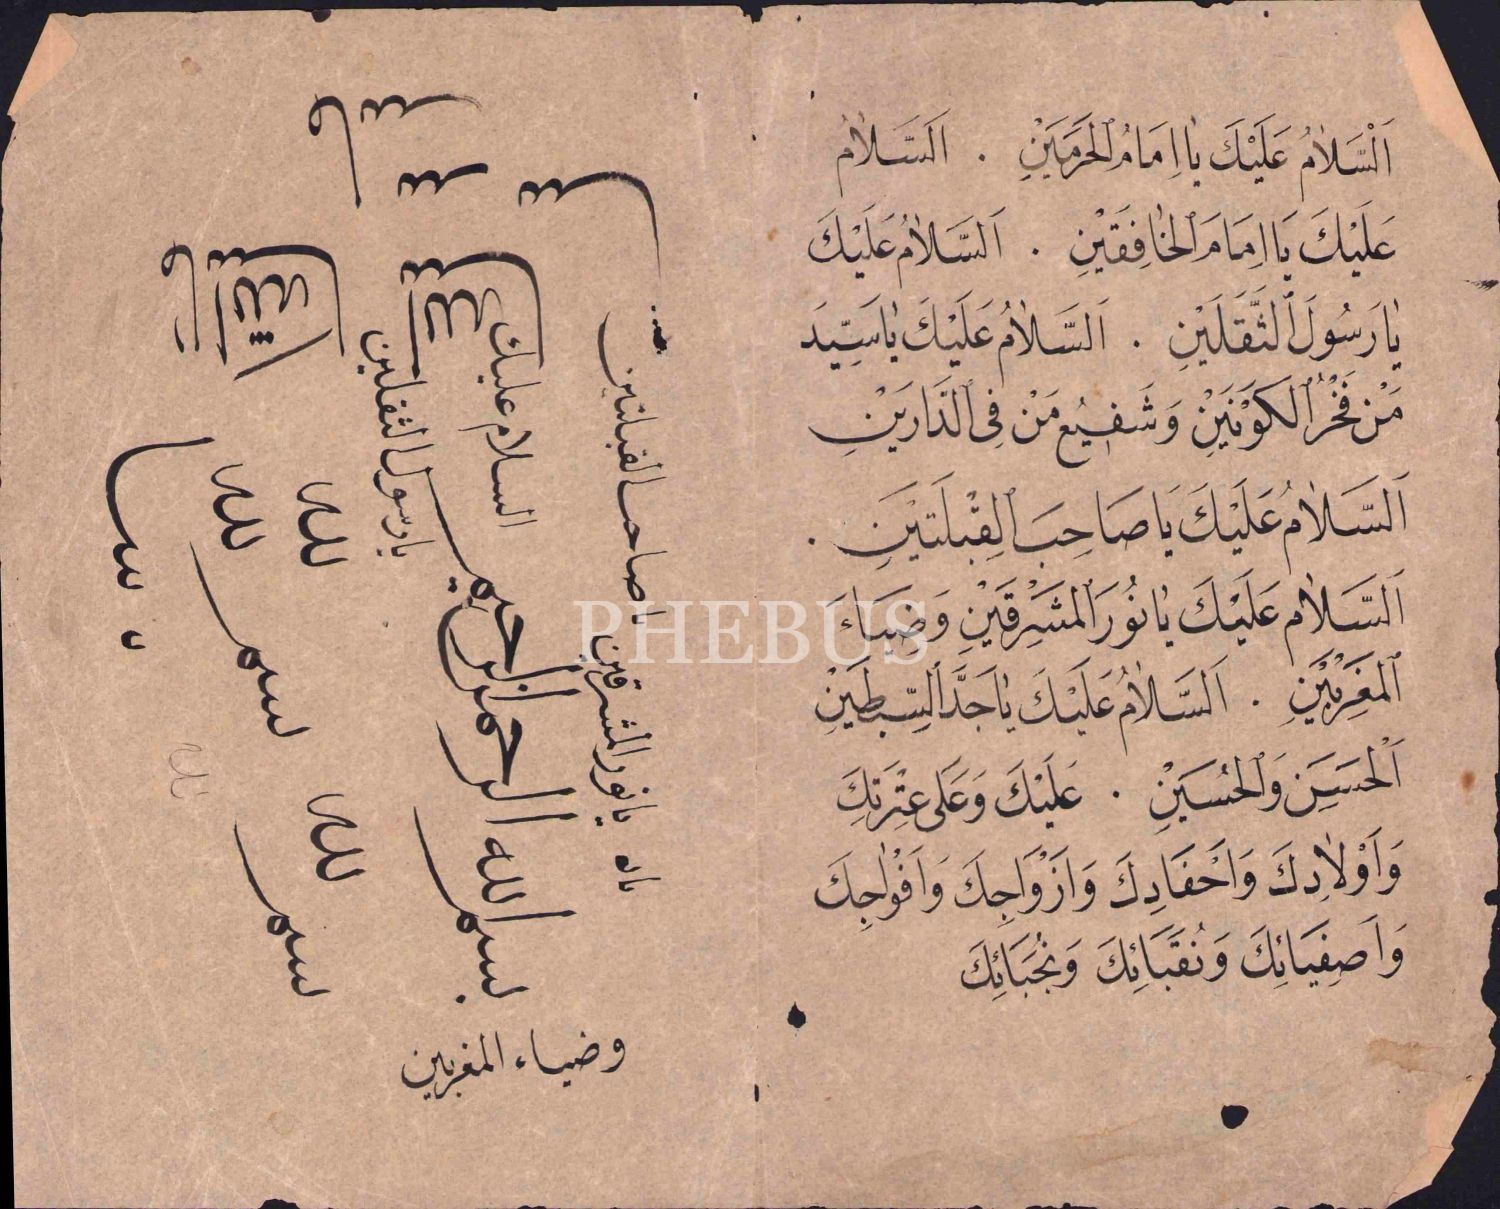 اَلسَّلَامُ عَلَيْكَ يَا اِمَامُ الْحَرَمَيْنِ . اَلسَّلَامُ
عَلَيْكَ يَا اِمَامَ الْخَافِقَيْنِ . اَلسَّلَامُ عَلَيْكَ
يَا رَسُولَ الثَّقَلَيْنِ . اَلسَّلَامُ عَلَيْكَ يَا سَيِّدَ
مَنْ فَخْرُ الْكَوْنَيْنِ وَشَفِيعُ مَنْ فِي الدَّارَيْنِ
اَلسَّلَامُ عَلَيْكَ يَا صَاحِبَ الْقِبْلَتَيْنِ .
اَلسَّلَامُ عَلَيْكَ يَا نُورَ الْمَشْرِقَيْنِ وَضِيَاءَ
الْمَغْرِبَيْنِ . اَلسَّلَامُ عَلَيْكَ يَا جَدَّ السِّبْطَيْنِ
اَلْحَسَنِ وَالْحُسَيْنِ . عَلَيْكَ وَعَلَى عِتْرَتِكَ
وَاَوْلَادِكَ وَاَحْفَادِكَ وَاَزْوَاجِكَ وَاَفْوَاجِكَ
وَاَصْفِيَائِكَ وَنُقَبَائِكَ وَنُجَبَائِكَ
السلام عليك
يا رسول الثقلين
يا صاحب القبلتين
يا نور المشرقين
بسم الله الرحمن الرحيم
لله
لله
بسم
لله
بسم
وضياء المغربين
PHEBUS